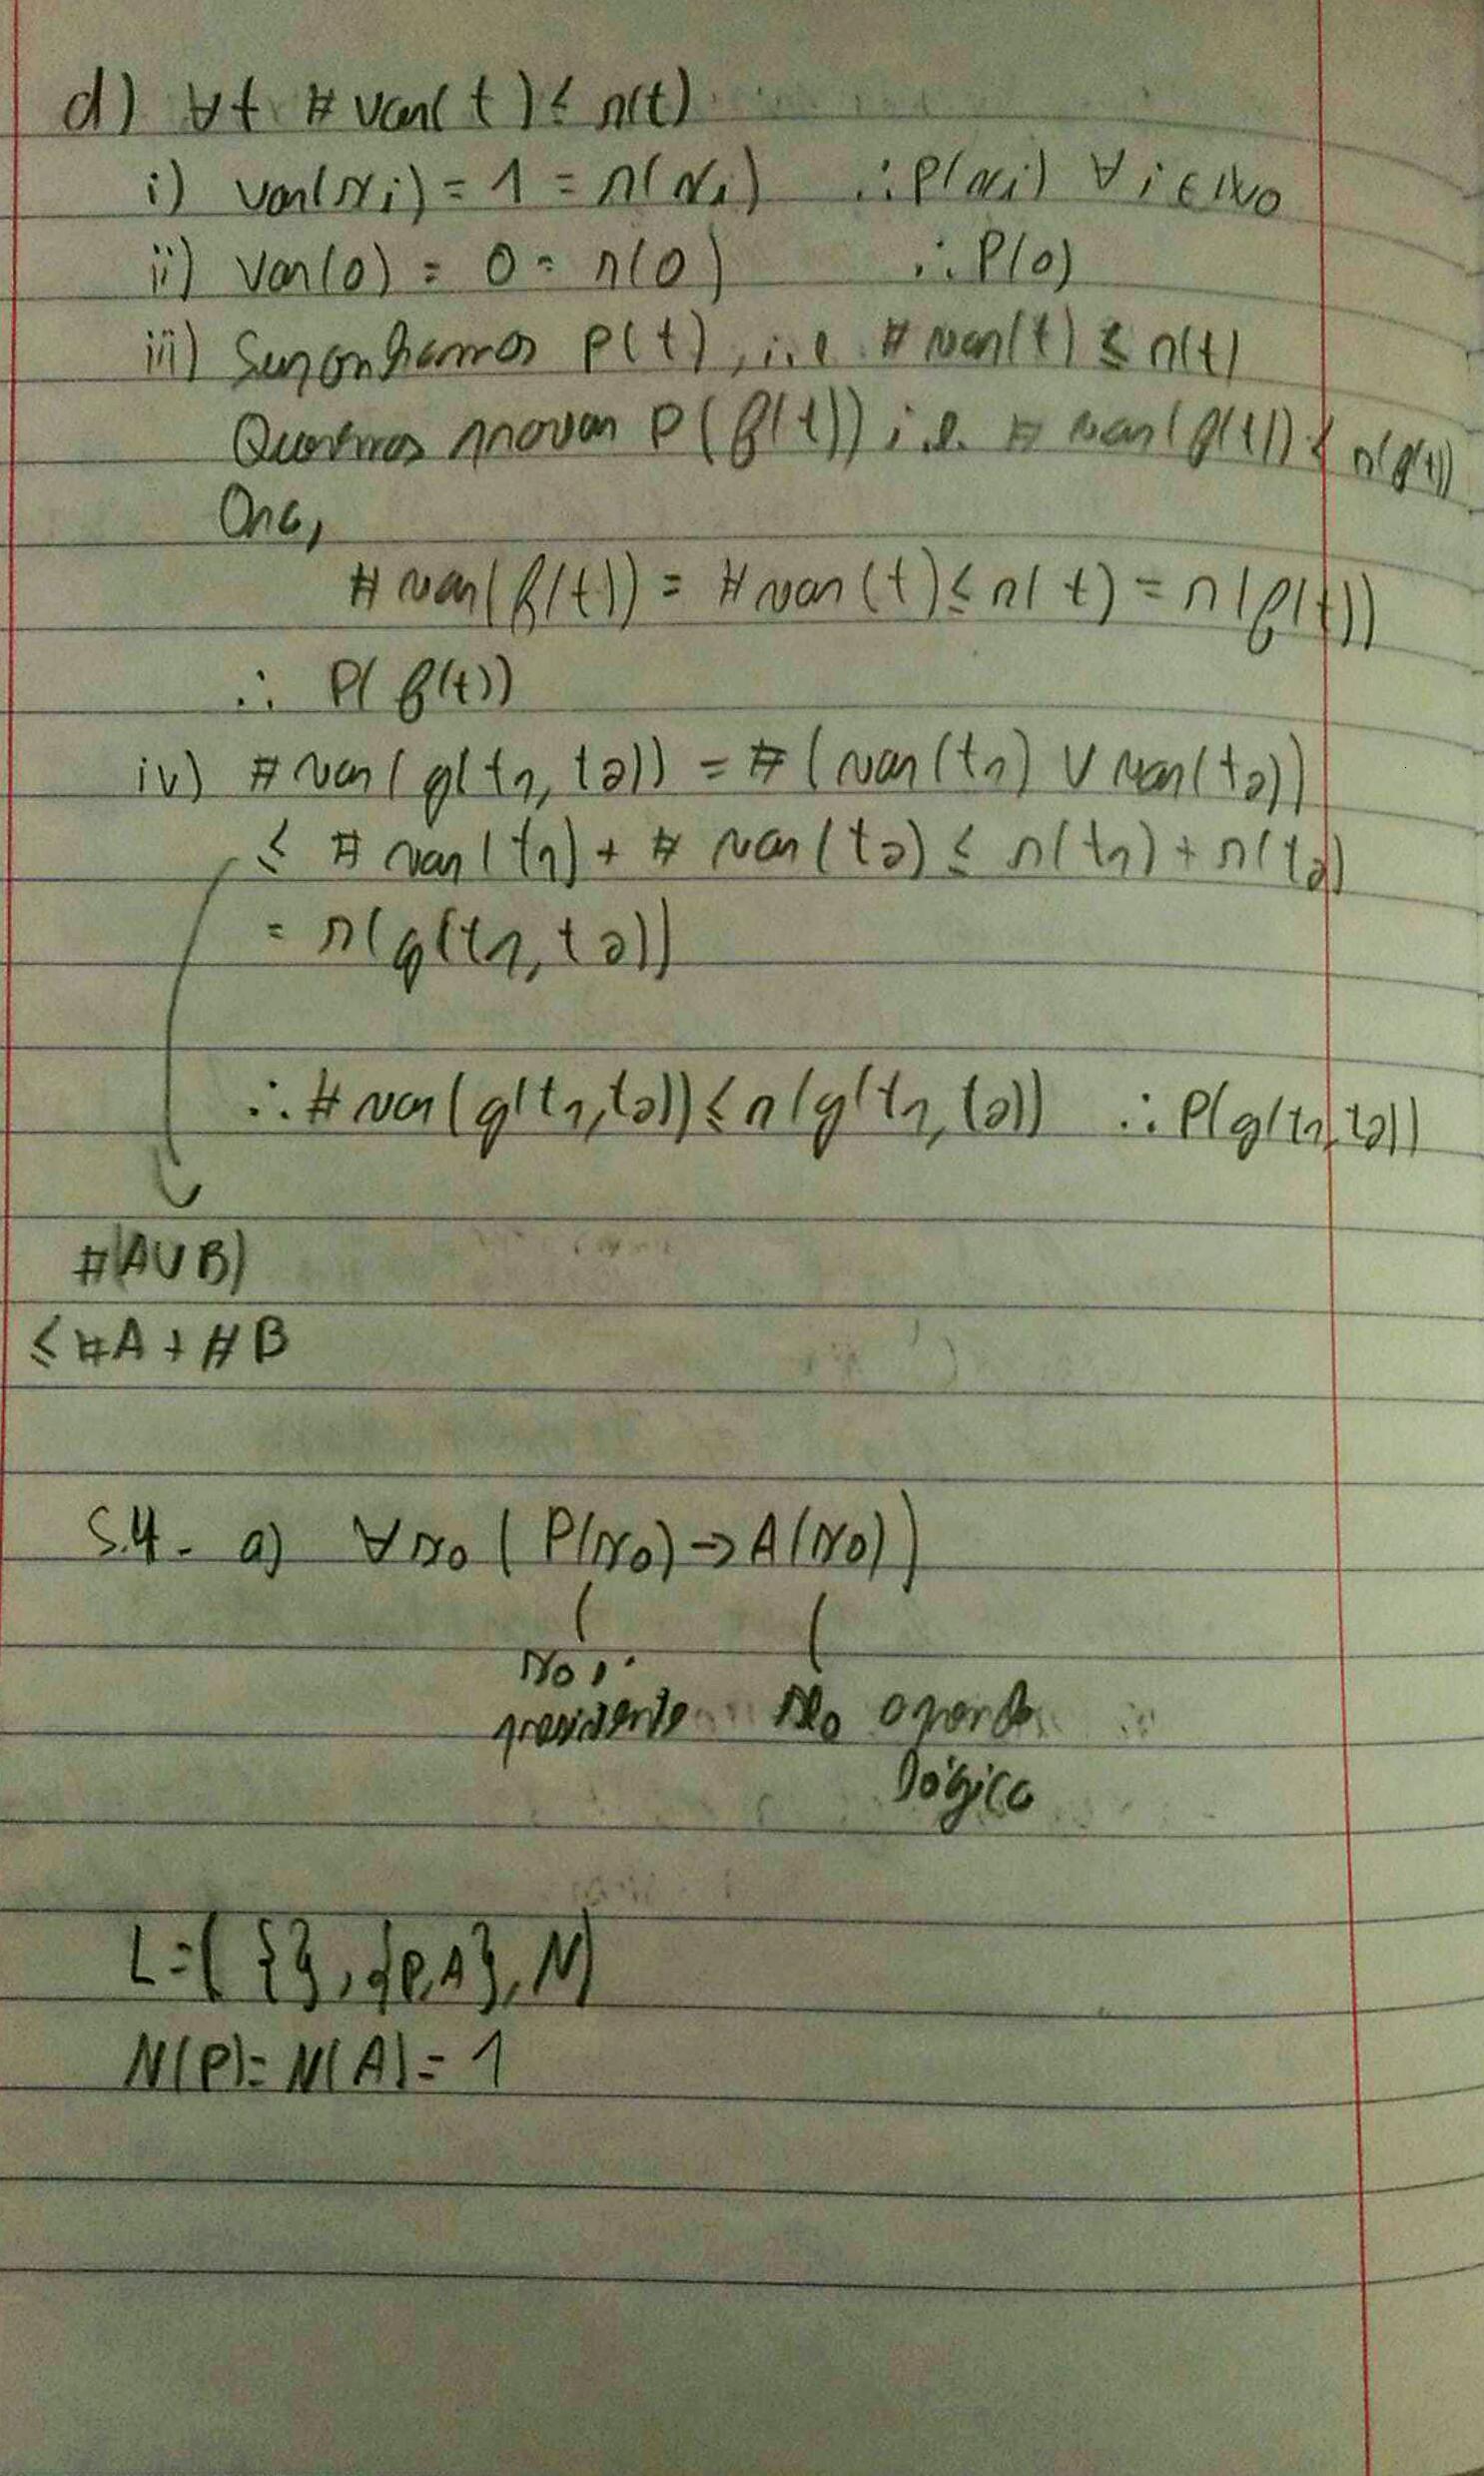 d) ∀t # var(t) ≤ n(t)
i) var(xi) = 1 = n(xi) ∴ P(xi) ∀ i ∈ IN0
ii) var(0) = 0 = n(0) ∴ P(0)
iii) Suponhamos P(t), i.e. # var(t) ≤ n(t)
Queremos provar P(f(t)) i.e. # var(f(t)) ≤ n(f(t))
Ora,
# var(f(t)) = # var(t) ≤ n(t) = n(f(t))
∴ P(f(t))
iv) # var(g(t1, t2)) = # (var(t1) ∪ var(t2))
≤ # var(t1) + # var(t2) ≤ n(t1) + n(t2)
= n(g(t1, t2))
∴ # var(g(t1, t2)) ≤ n(g(t1, t2)) ∴ P(g(t1, t2))
#(A∪B)
≤ #A + #B
5.4- a) ∀x0 (P(x0) → A(x0))
x0 i
presidente x0 aprende
lógica
L = ({}, {P,A}, N)
N(P) = N(A) = 1